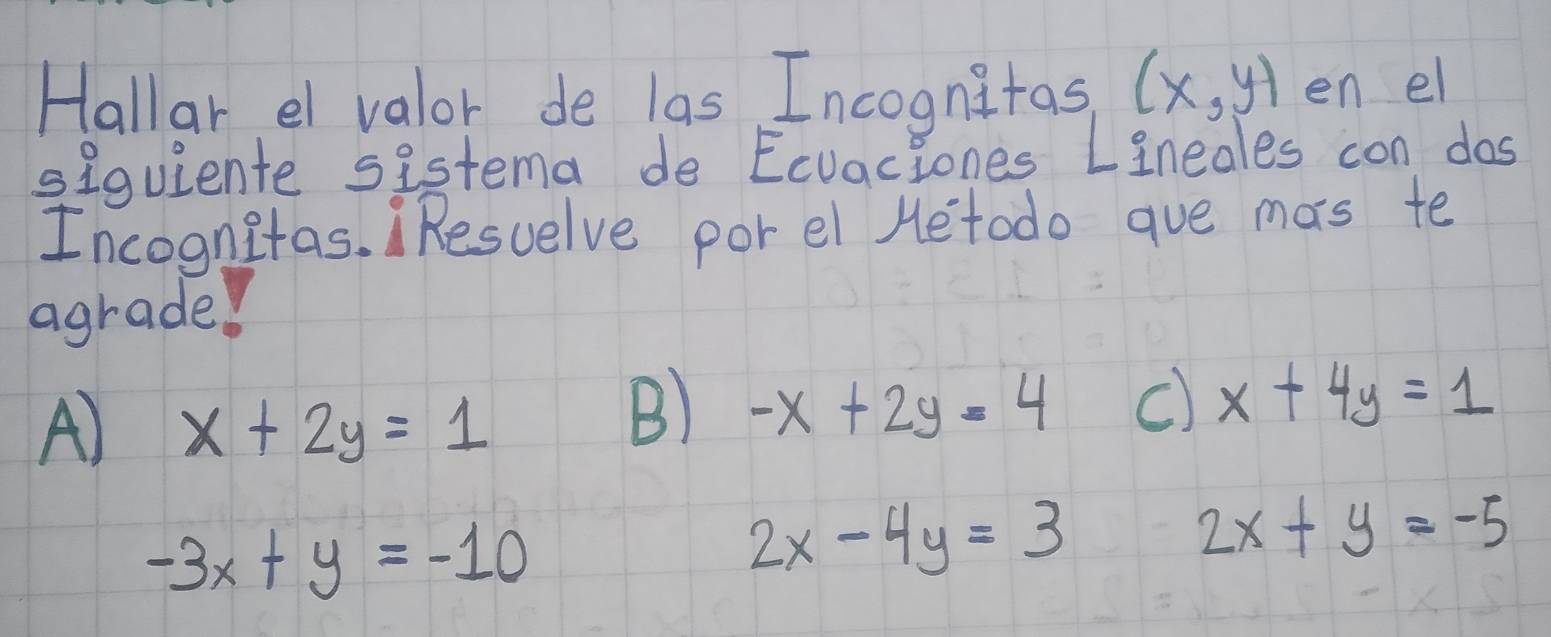 Hallar el valor de las Incognitas (x,y) en el
siguiente sistema de Ecuaciones Lineales con dos
Incognitas. ¡Resuelve por el Método que más te
agrade!
A) x + 2y = 1 B) -x + 2y = 4 C) x + 4y = 1
-3x + y = -10 2x - 4y = 3 2x + y = -5